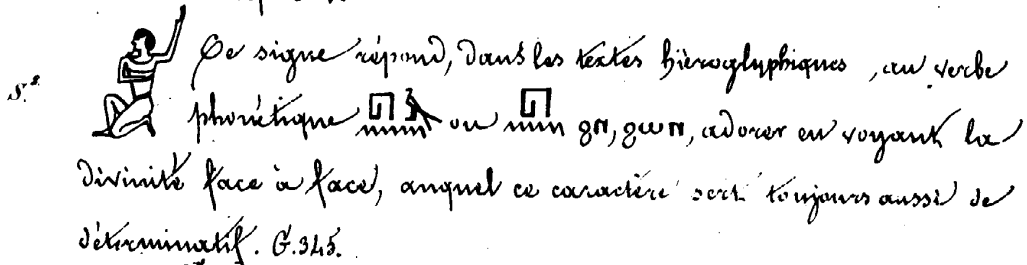 S.² Ce signe répond, dans les textes hiéroglyphiques, au verbe
phonétique ou ϩⲛ, ϩⲱⲛ, adorer en voyant la
divinité face à face, auquel ce caractère sert toujours aussi de
déterminatif. G. 345.